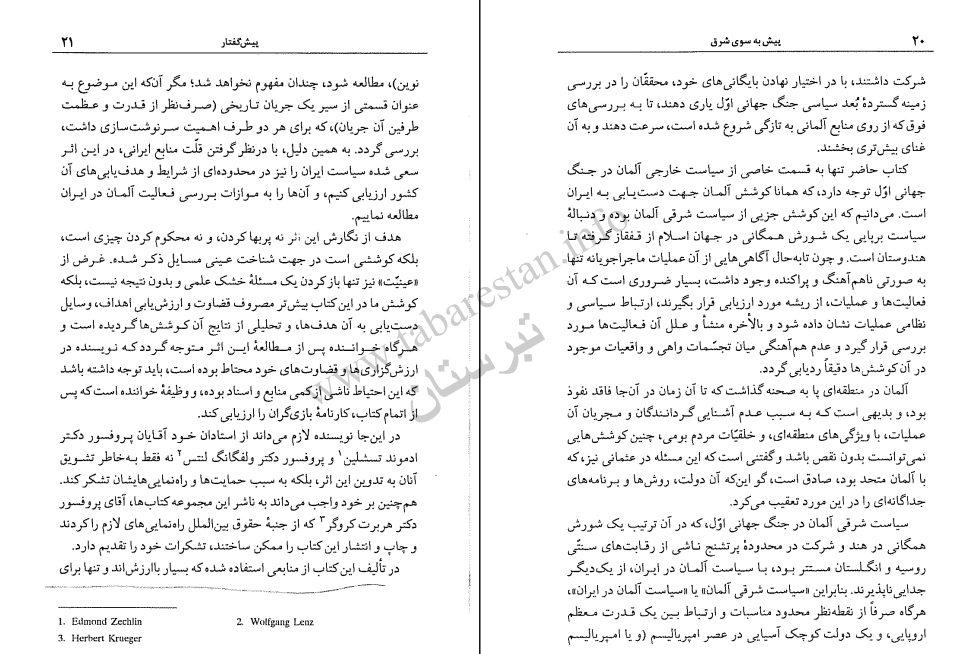 ۲۰
پیش به سوی شرق
شرکت داشتند، با در اختیار نهادن بایگانی‌های خود، محققّان را در بررسی
زمینه گستردهٔ بُعد سیاسی جنگ جهانی اوّل یاری دهند، تا به بررسی‌های
فوق که از روی منابع آلمانی به تازگی شروع شده است، سرعت دهند و به آن
غنای بیش‌تری بخشند.
کتاب حاضر تنها به قسمت خاصی از سیاست خارجی آلمان در جنگ
جهانی اوّل توجه دارد، که همانا کوشش آلمان جهت دست‌یابی به ایران
است. می‌دانیم که این کوشش جزیی از سیاست شرقی آلمان بوده و دنبالهٔ
سیاست برپایی یک شورش همگانی در جهان اسلام از قفقاز گرفته تا
هندوستان است. و چون تابه‌حال آگاهی‌هایی از آن عملیات ماجراجویانه تنها
به صورتی ناهم‌آهنگ و پراکنده وجود داشت، بسیار ضروری است که آن
فعالیت‌ها و عملیات، از ریشه مورد ارزیابی قرار بگیرند، ارتباط سیاسی و
نظامی عملیات نشان داده شود و بالأخره منشأ و علل آن فعالیت‌ها مورد
بررسی قرار گیرد و عدم هم‌آهنگی میان تجسّمات واهی و واقعیات موجود
در آن کوشش‌ها دقیقاً ردیابی گردد.
آلمان در منطقه‌ای پا به صحنه گذاشت که تا آن زمان در آن‌جا فاقد نفوذ
بود، و بدیهی است کـه بـه سبب عـدم آشـنایی گـردانـندگان و مـجریان آن
عملیات، با ویژگی‌های منطقه‌ای، و خلقیّات مردم بومی، چنین کوشش‌هایی
نمی‌توانست بدون نقص باشد و گفتنی است که این مسئله در عثمانی نیز، که
با آلمان متحد بود، صادق است، گو این‌که آن دولت، روش‌ها و برنامه‌های
جداگانه‌ای را در این مورد تعقیب می‌کرد.
سیاست شرقی آلمان در جنگ جهانی اوّل، که در آن ترتیب یک شورش
همگانی در هند و شرکت در محدودهٔ پرتشنج ناشی از رقابت‌های سنتّی
روسیه و انگلستان مستتر بود، با سیاست آلمان در ایران، از یک‌دیگر
جدایی‌ناپذیرند. بنابراین «سیاست شرقی آلمان» یا «سیاست آلمان در ایران»،
هرگاه صرفاً از نقطه‌نظر محدود مناسبات و ارتباط بین یک قدرت معظم
اروپایی، و یک دولت کوچک آسیایی در عصر امپریالیسم (و یا امپریالیسم
پیش‌گفتار
۲۱
نوین)، مطالعه شود، چندان مفهوم نخواهد شد؛ مگر آن‌که این موضوع به
عنوان قسمتی از سیر یک جریان تاریخی (صرف‌نظر از قدرت و عظمت
طرفین آن جریان)، که برای هر دو طرف اهمیت سرنوشت‌سازی داشت،
بررسی گردد. به همین دلیل، با درنظر گرفتن قلّت منابع ایرانی، در این اثر
سعی شده سیاست ایران را نیز در محدوده‌ای از شرایط و هدف‌یابی‌های آن
کشور ارزیابی کنیم، و آن‌ها را به موازات بررسی فعالیت آلمان در ایران
مطالعه نماییم.
هدف از نگارش این اثر نه پربها کردن، و نه محکوم کردن چیزی است،
بلکه کوششی است در جهت شناخت عینی مسایل ذکر شده. غرض از
«عینیّت» نیز تنها باز کردن یک مسئلهٔ خشک علمی و بدون نتیجه نیست، بلکه
کوشش ما در این کتاب بیش‌تر مصروف قضاوت و ارزش‌یابی اهداف، وسایل
دست‌یابی به آن هدف‌ها، و تحلیلی از نتایج آن کوشش‌ها گردیده است و
هـرگاه خـواننده پس از مـطالعهٔ ایـن اثـر مـتوجه گـردد کـه نـویسنده در
ارزش‌گزاری‌ها و قضاوت‌های خود محتاط بوده است، باید توجه داشته باشد
که این احتیاط ناشی از کمی منابع و اسناد بوده، و وظیفهٔ خواننده است که پس
از اتمام کتاب، کارنامهٔ بازی‌گران را ارزیابی کند.
در این‌جا نویسنده لازم می‌داند از استادان خود آقایان پروفسور دکتر
ادموند تسشلین۱ و پروفسور دکتر ولفگانگ لنتس۲ نه فقط به‌خاطر تشویق
آنان به تدوین این اثر، بلکه به سبب حمایت‌ها و راه‌نمایی‌هایشان تشکر کند.
هم‌چنین بر خود واجب می‌داند به ناشر این مجموعه کتاب‌ها، آقای پروفسور
دکتر هربرت کروگر۳ که از جنبهٔ حقوق بین‌الملل راه‌نمایی‌های لازم را کردند
و چاپ و انتشار این کتاب را ممکن ساختند، تشکرات خود را تقدیم دارد.
در تألیف این کتاب از منابعی استفاده شده که بسیار باارزش‌اند و تنها برای
1. Edmond Zechlin 2. Wolfgang Lenz
3. Herbert Krueger
www.tabarestan.info
تبرستان